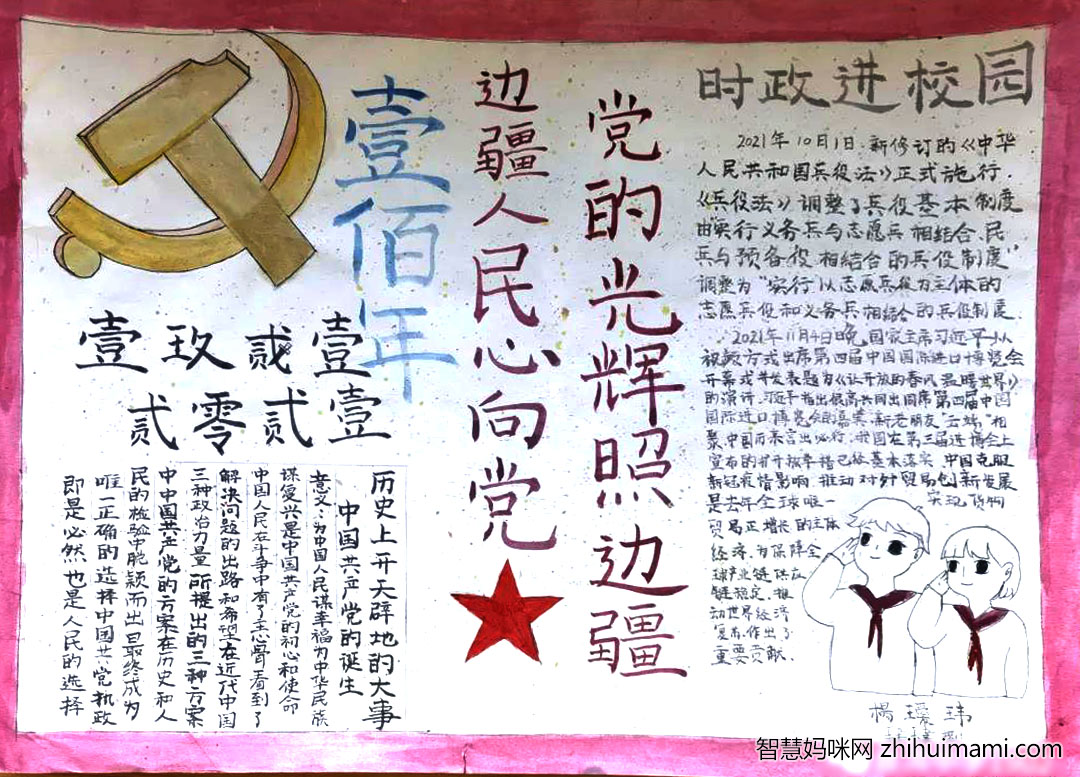 时政进校园
2021年10月1日,新修订的《中华
人民共和国兵役法》正式施行.
《兵役法》调整了兵役基本制度
由"实行义务兵与志愿兵相结合,民
兵与预备役相结合的兵役制度"
调整为"实行以志愿兵役为主体的
志愿兵役和义务兵相结合的兵役制度
2021年11月4日晚,国家主席习近平以
视频方式出席第四届中国国际进口博览会
开幕式并发表题为《让开放的春风温暖世界》
的演讲.习近平指出很高兴同出席第四届中国
国际进口博览会的嘉宾,新老朋友"云端"相
聚.中国历来言出必行,我国在第三届进博会上
宣布的扩开放举措已经基本落实.中国克服
新冠疫情影响,推动对外贸易创新发展
是去年全球唯一实现货物
贸易正增长的主体
经济,为保障全
球产业链供应
链稳定,推
动世界经济
复苏作出了
重要贡献.
党的光辉照边疆
边疆人民心向党
壹佰年
壹玖贰壹
贰零贰壹
历史上开天辟地的大事
中国共产党的诞生
意义:为中国人民谋幸福为中华民族
谋复兴是中国共产党的初心和使命
中国人民在斗争中有了主心骨看到了
解决问题的出路和希望在近代中国
三种政治力量所提出的三种方案
中中国共产党的方案在历史和人
民的检验中脱颖而出最终成为
唯一正确的选择中国共产党执政
即是必然也是人民的选择
杨瑷玮
智慧妈咪网 zhihuimami.com